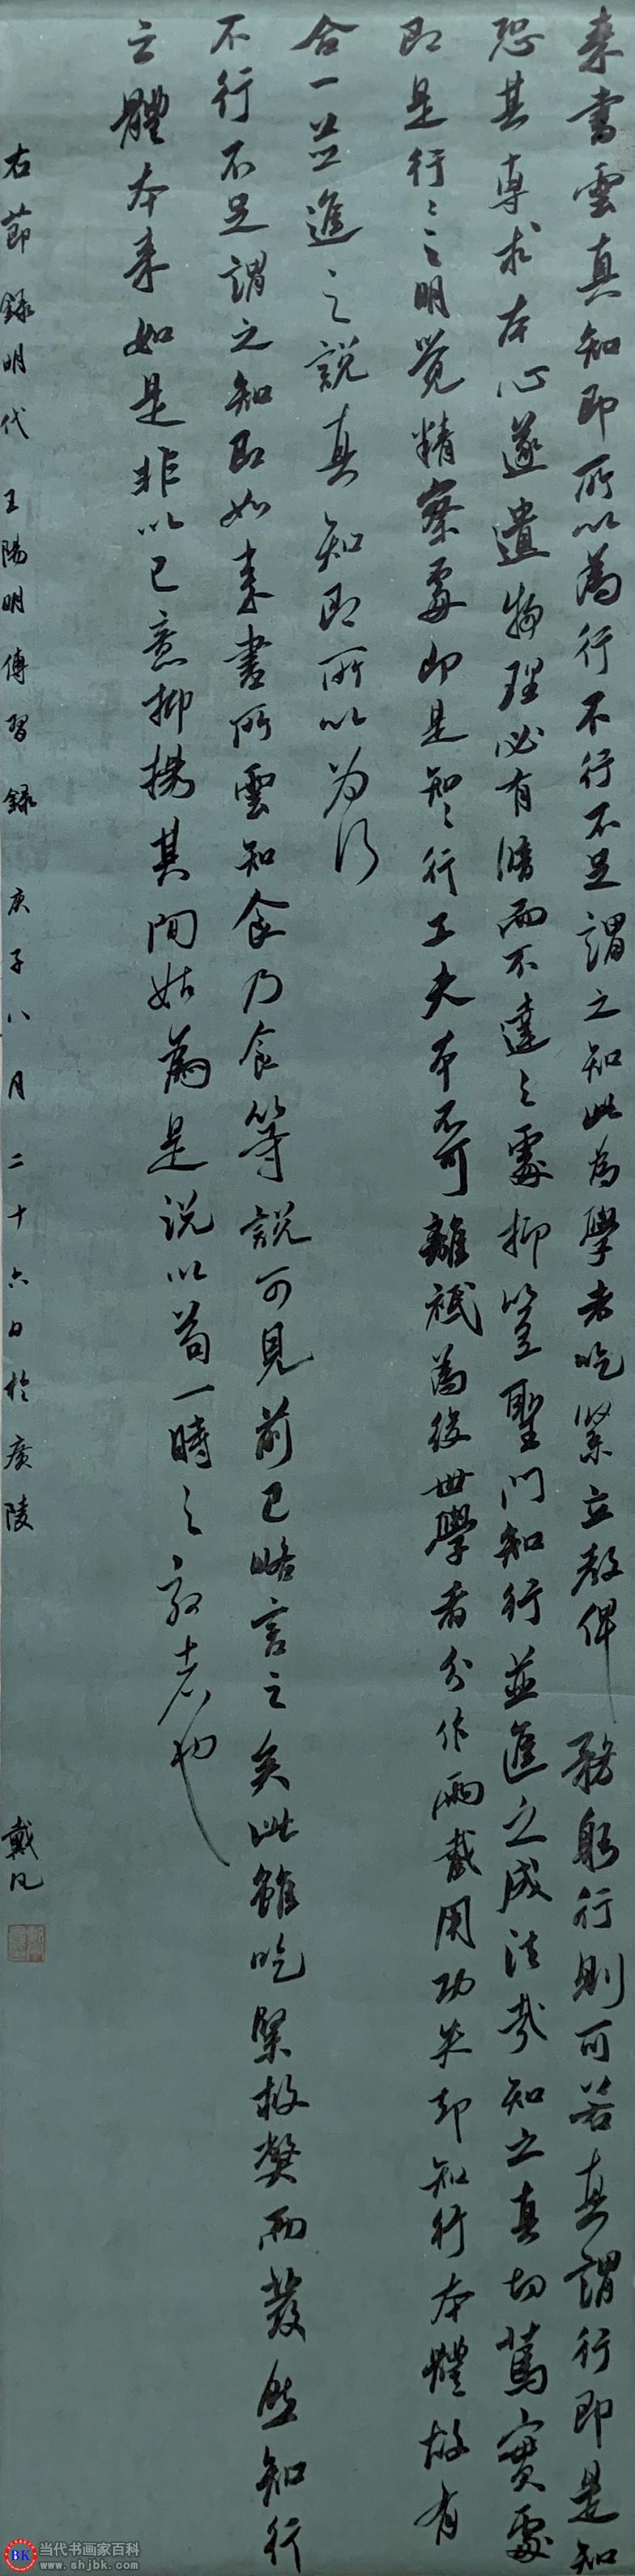 来書雲真知即所以為行不行不足謂之知此為學者吃緊立教俾務躬行則可若真謂行即是知
恐其專求本心遂遺物理必有暗而不達之處抑豈聖門知行並進之成法哉知之真切篤實處
即是行行之明覺精察處即是知知行工夫本不可離衹為後世學者分作兩截用功失却知行本體故有
合一並進之說真知即所以为行
不行不足謂之知即如来書所雲知食乃食等說可見前已略言之矣此雖吃緊救弊而發然知行
之體本来如是非以已意抑揚其間姑為是説以苟一時之效者也
右節録明代王陽明傳習録 庚子八月二十六日於廣陵
戴凡
当代书画家百科
www.shjbk.com
BK